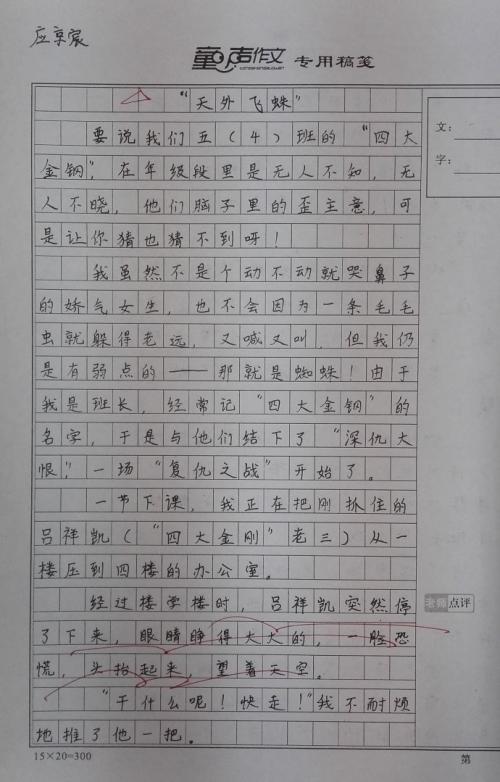 庄京宸
童声作文 专用稿笺
“天外飞蛛”
要说我们五(4)班的“四大
金钢”,在年级段里是无人不知,无
人不晓,他们脑子里的歪主意,可
是让你猜也猜不到呀!
我虽然不是个动不动就哭鼻子
的娇气女生,也不会因为一条毛毛
虫就躲得老远,又喊又叫,但我仍
是有弱点的——那就是蜘蛛!由于
我是班长,经常记“四大金钢”的
名字,于是与他们结下了“深仇大
恨”,一场“复仇之战”开始了。
一节下课,我正在把刚抓住的
吕祥凯(“四大金刚”老三)从一
楼压到四楼的办公室。
经过楼学楼时,吕祥凯突然停
了下来,眼睛睁得大大的,一脸恐
慌,头抬起来,望着天空。
“干什么呢!快走!”我不耐烦
地推了他一把。
15×20=300
文:
字:
老师点评
第